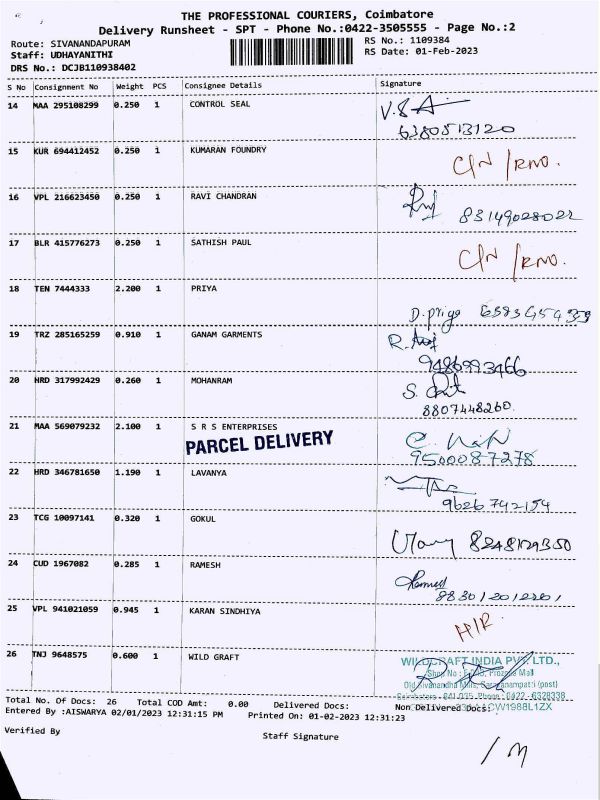 THE PROFESSIONAL COURIERS, Coimbatore
Delivery Runsheet - SPT - Phone No.:0422-3505555 - Page No.:2
Route: SIVANANDAPURAM RS No.: 1109384
Staff: UDHAYANITHI RS Date: 01-Feb-2023
DRS No.: DCJB110938402
S No Consignment No Weight PCS Consignee Details Signature
14 MAA 295108299 0.250 1 CONTROL SEAL V.S.A
6380513120
15 KUR 694412452 0.250 1 KUMARAN FOUNDRY C/N /RNO.
16 VPL 216623450 0.250 1 RAVI CHANDRAN
83149028022
17 BLR 415776273 0.250 1 SATHISH PAUL C/N /RNO.
18 TEN 7444333 2.200 1 PRIYA
D.priya
19 TRZ 285165259 0.910 1 GANAM GARMENTS R.
9486993466
20 HRD 317992429 0.260 1 MOHANRAM S.
8807448260.
21 MAA 569079232 2.100 1 S R S ENTERPRISES
PARCEL DELIVERY
9500087278
22 HRD 346781650 1.190 1 LAVANYA
9626742154
23 TCG 10097141 0.320 1 GOKUL
8248129350
24 CUD 1967082 0.285 1 RAMESH Ramesh
25 VPL 941021059 0.945 1 KARAN SINDHIYA H/R.
26 TNJ 9648575 0.600 1 WILD GRAFT
WILDCRAFT INDIA PVT. LTD.,
Shop No : Prozone Mall
Old Sivanandha Mills, Saravanampati (post)
Coimbatore - 641 035. Phone : 0422 - 6528338
Total No. Of Docs: 26 Total COD Amt: 0.00 Delivered Docs: Non Delivered Docs:
Entered By :AISWARYA 02/01/2023 12:31:15 PM Printed On: 01-02-2023 12:31:23
Verified By Staff Signature